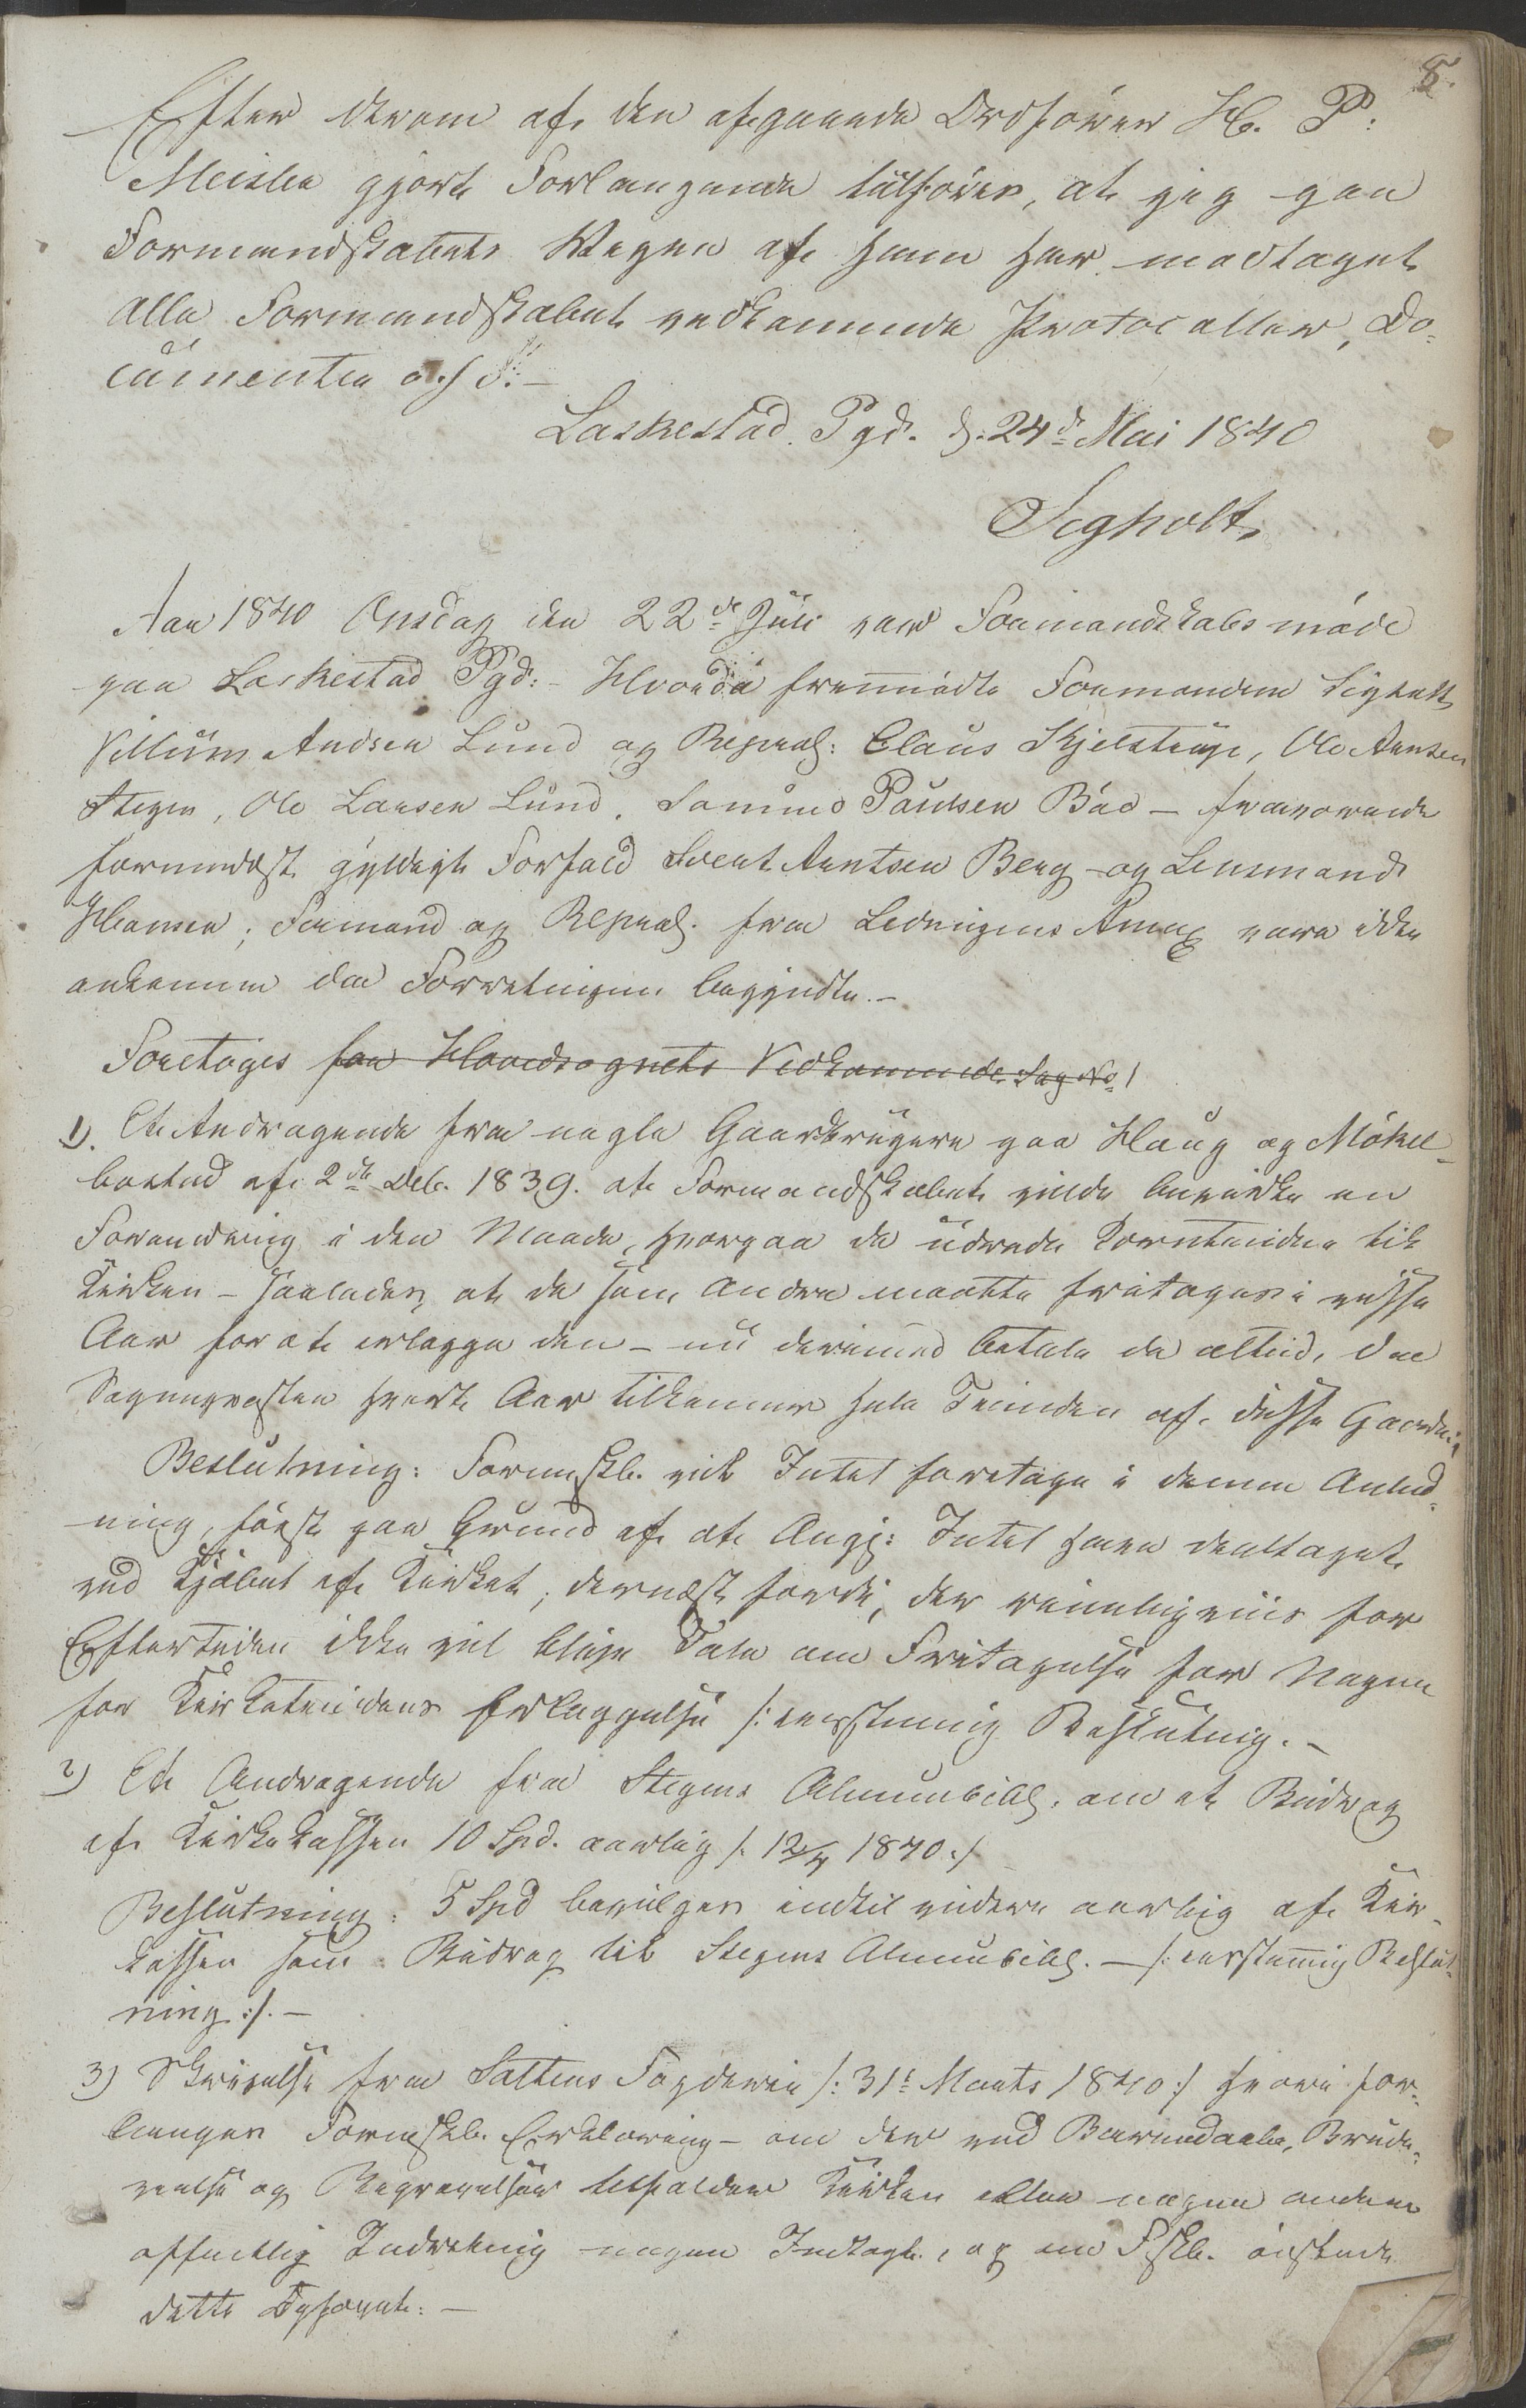 8.
Efter derom af den afgaaende Ordförer H. P.
Meislen gjort Forlangende tilföies, at jeg paa
Formandskabets Wegne af ham har modtaget
alle Formandskabet vedkommende Protocoller, Do-
cumenter o. s. v. –
Laskestad Pgd. d. 24de Mai 1840
Sigholt
Aar 1840 Onsdag den 22de Juli var Formandskabsmöde
paa Laskestad Pgd: – Hvorda fremmödte Formændene Sigholt
Villum Andsen Lund og Repræs: Claus Kjelstrup, Ole Arntsen
Stegen, Ole Larsen Lund, Rasmus Paulsen Bö – fraværende
formedelst gyldigt Forfald Svent Arntsen Berg og Lensmand
Hansen; Formænd og Repræs. fra Ledingens Annex vare ikke
ankomne da Forretningen begyndte. –
Foretoges for Hovedsognets Vedkommende Sag No 1
1). Et Andragende fra nogle Gaardbrugere paa Haug og Mökel-
bostad af 2de Deb. 1839. at Formandskabet vilde bevirke en
Forandring i den Maade, hvorpaa de udrede Korntienden til
Kirken – saaledes, at de som Andre maatte fritages i visse
Aar for at erlægge den – nu derimod betale de altid, da
Sognepræsten hvert Aar tilkommer hele Tienden af disse Gaarde.
Beslutning: Formskb. vil Intet foretage i denne Anled-
ning, först paa Grund af at Angj: Intet have deeltaget
ved Kjöbet af Kirket; dernæst fordi, der rimeligviis for
Eftertiden ikke vil blive Tale om Fritagelse for Nogen
for Kirketiendens Erlæggelse /: eenstemmig Beslutning. –
2) Et Andragende fra Stegens Almuebibl. om et Bidrag
af Kirkekassen 10 Spd. aarlig /: 12/4 1840 :/
Beslutning: 5 Spd bevilges indtil videre aarlig af Kir-
kassen som Bidrag til Stegens Almuebibl. – /: eenstemmig Beslut-
ning :/. –
3) Skrivelse fra Saltens Fogderie /: 31t Marts 1840 :/ hvori for-
langes Formskb. Erklæring – om der ved Barnedaabe, Brude-
vielse og Begravelser tilfalder Kirken eller nogen anden
offentlig Indretning nogen Indtægt, og om Fskb. önskede
dette